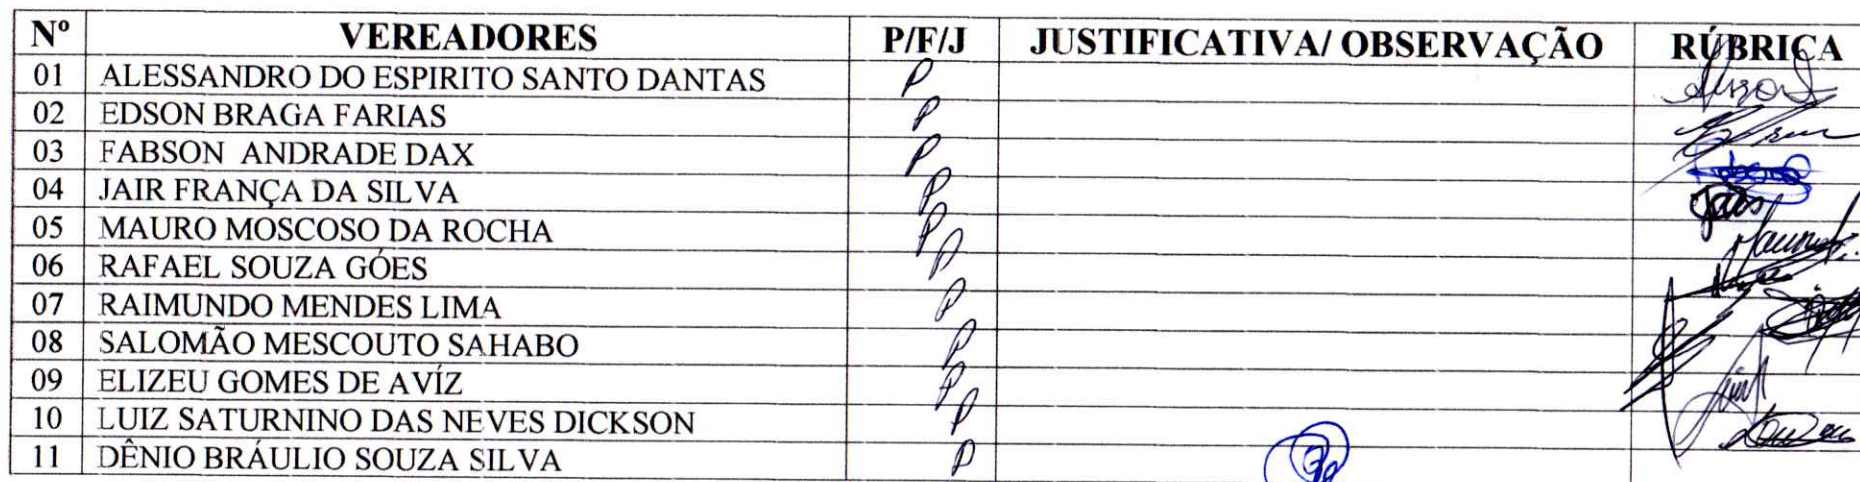 Nº VEREADORES P/F/J JUSTIFICATIVA/ OBSERVAÇÃO RÚBRICA
01 ALESSANDRO DO ESPIRITO SANTO DANTAS P
02 EDSON BRAGA FARIAS P
03 FABSON ANDRADE DAX P
04 JAIR FRANÇA DA SILVA P
05 MAURO MOSCOSO DA ROCHA P
06 RAFAEL SOUZA GÓES P
07 RAIMUNDO MENDES LIMA P
08 SALOMÃO MESCOUTO SAHABO P
09 ELIZEU GOMES DE AVÍZ P
10 LUIZ SATURNINO DAS NEVES DICKSON P
11 DÊNIO BRÁULIO SOUZA SILVA P